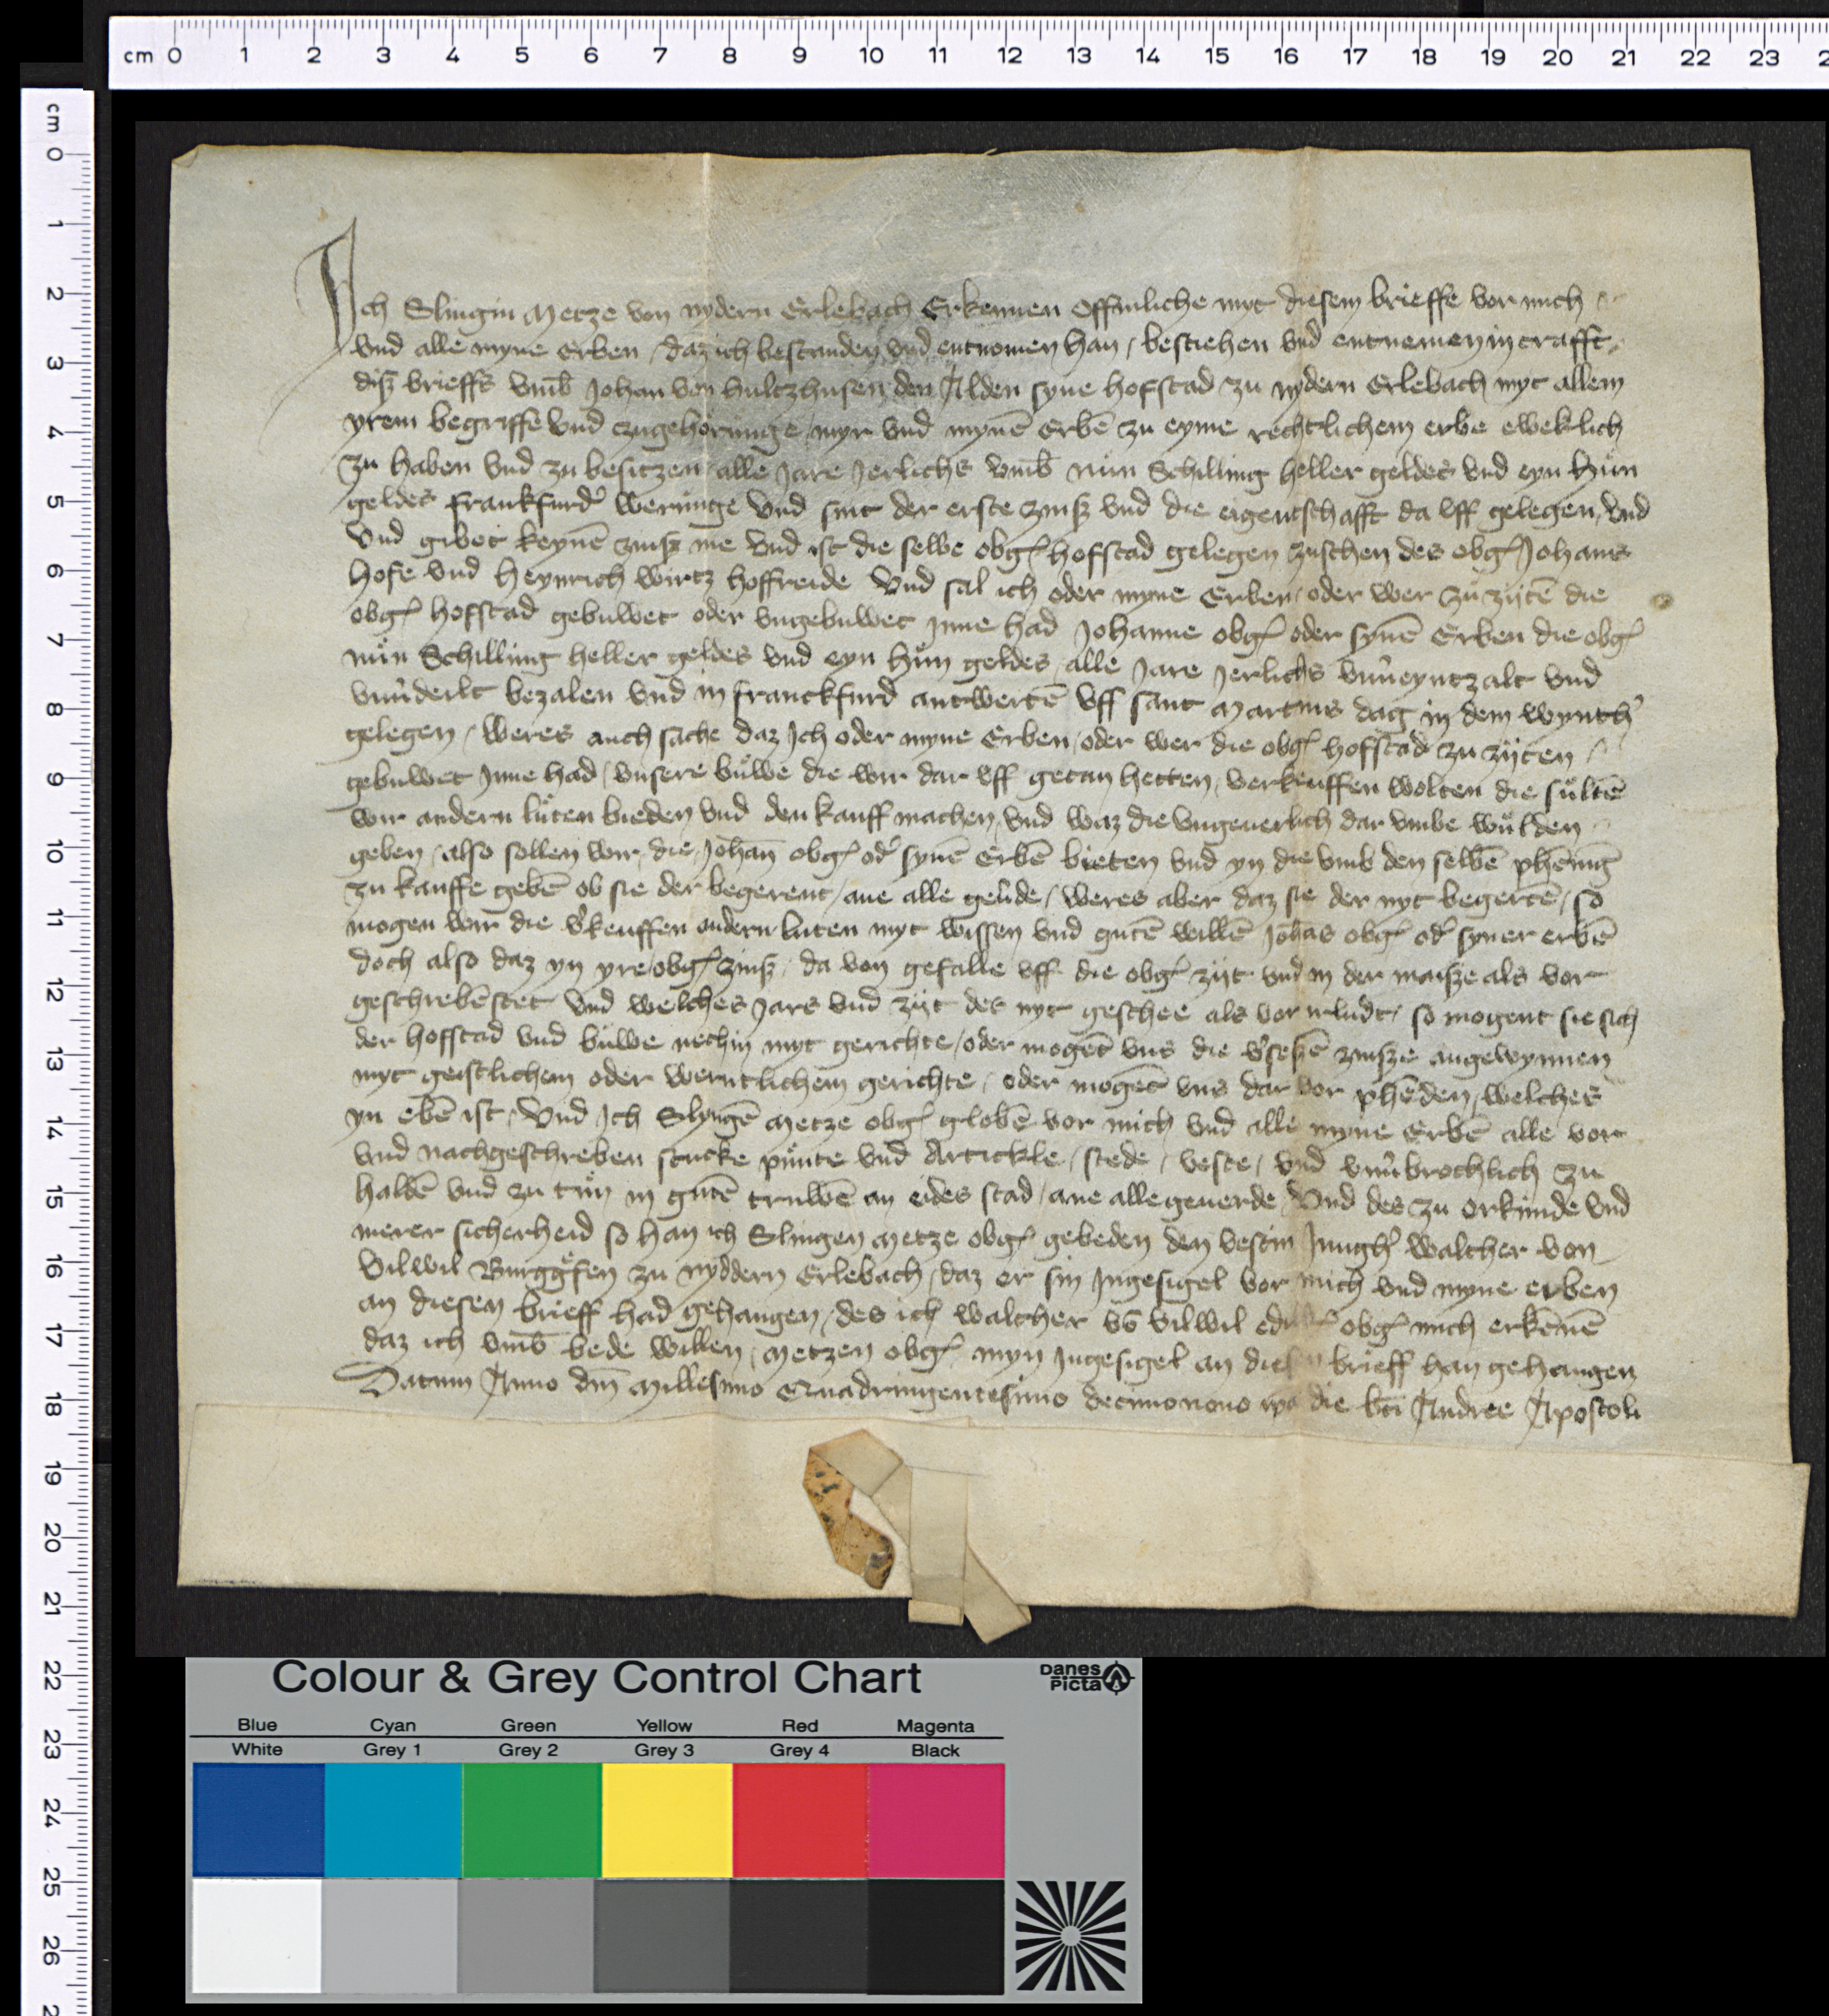 Ich Slingin Metze von nydern Erlebach Erkennen offinliche myt diesem brieffe vor mich
vnd alle myne Erben / daz ich bestanden vnd entnomen han / bestehen vnd entnemen in crafft
diß brieffs vmb Johan von hultzhusen den Alden syne hofstad zu nydern Erlebach myt allem
yrem begriffe vnd czugehorunge myr vnd mynē Erbē zu eyme rechtlichem erbe eweklich
Zu haben vnd zu besitzen alle Jare Jerlichs vmb nůn Schilling heller geldes vnd eyn hůn
geldes franckfurd' werunge vnd sint der erste zinß vnd die eigentschafft da vff gelegen, vnd
vnd gibet keynē zinß me vnd ist die selbe obg' hofstad gelegen zuschen des obg' Johans
hofe vnd heynrich wirtz hoffreide vnd sal ich oder myne Erben / oder wer zu zijtē die
obg' hofstad gebuwet oder vngebuwet Inne had Johanne obg' oder synē Erben die obg'
nůn Schilling heller geldes vnd eyn hůn geldes / alle Jare Jerlichs vnu'eyntzalt vnd
vnu'deilt bezalen vnd in franckfurd antwertē vff sant Martins dag in dem wynth'
gelegen / weres auch sache daz Ich oder myne Erben / oder wer die obg' hofstad zu zijten
gebuwet Inne had / vnsere bůwe die wir dar vff getan hetten / verkeuffen wolten die sůltē
wir andern lůten bieden vnd den kauff machen, vnd waz die vngeuerlich dar vmbe wůlden
geben / also sollen wir die Johan obg' od' synē Erbē bieten vnd yn die vmb den selbē phēnīg
zu kauffe gebē ob sie der begerent / ane alle geu'de / weres aber daz sie der nyt begertē / so
mogen wir die v'keuffen andern luten myt wissen vnd gutē willē Johās obg' od' syner erbē
doch also daz yn yre obg' zinß / da von gefalle vff die obg' zijt vnd in der maiße als vor
geschrebē stet vnd welches Jars vnd zijt des nyt geschee als vor irludt / so mogent sie sich
der hofstad vnd bůwe nechin myt gerichte / oder mogēt vns die v'seßē zinße angewynnen
myt geistlichem oder werntlichem gerichte / oder mogēt vns dar vor phēden / welches
yn ebē ist / Vnd Ich Slyngē Metze obg' globē vor mich vnd alle myne Erbē alle vor
vnd nachgeschreben stucke půnte vnd Artickle / stede / veste / vnd vnu'brochlich zu
haldē vnd zu tůn in gutē truwē an eides stad / ane alle geuerde / Vnd des zu orkunde vnd
merer sicherheid so han ich Slingen Metze obg' gebeden den vestin Jungh' walther von
Vilwil Burggrefen zu nyddern Erlebach / daz er sin Ingesigel vor mich vnd myne erben
an diesen brieff had gehangen / des ich walther vō Vilwil obg' mich erkēnē
daz ich vmb bede willen / Metzen obg' myn Ingesigel an diesen brieff han gehangen
Datum Anno dm̄ Millesimo Quadringentesimo decimonono ip̄o die bt̄i Andree Apostoli
cm 0 1 2 3 4 5 6 7 8 9 10 11 12 13 14 15 16 17 18 19 20 21 22 23
cm 0 1 2 3 4 5 6 7 8 9 10 11 12 13 14 15 16 17 18 19 20 21 22 23 24 25 26
Colour & Grey Control Chart
Danes Picta
Blue Cyan Green Yellow Red Magenta
White Grey 1 Grey 2 Grey 3 Grey 4 Black